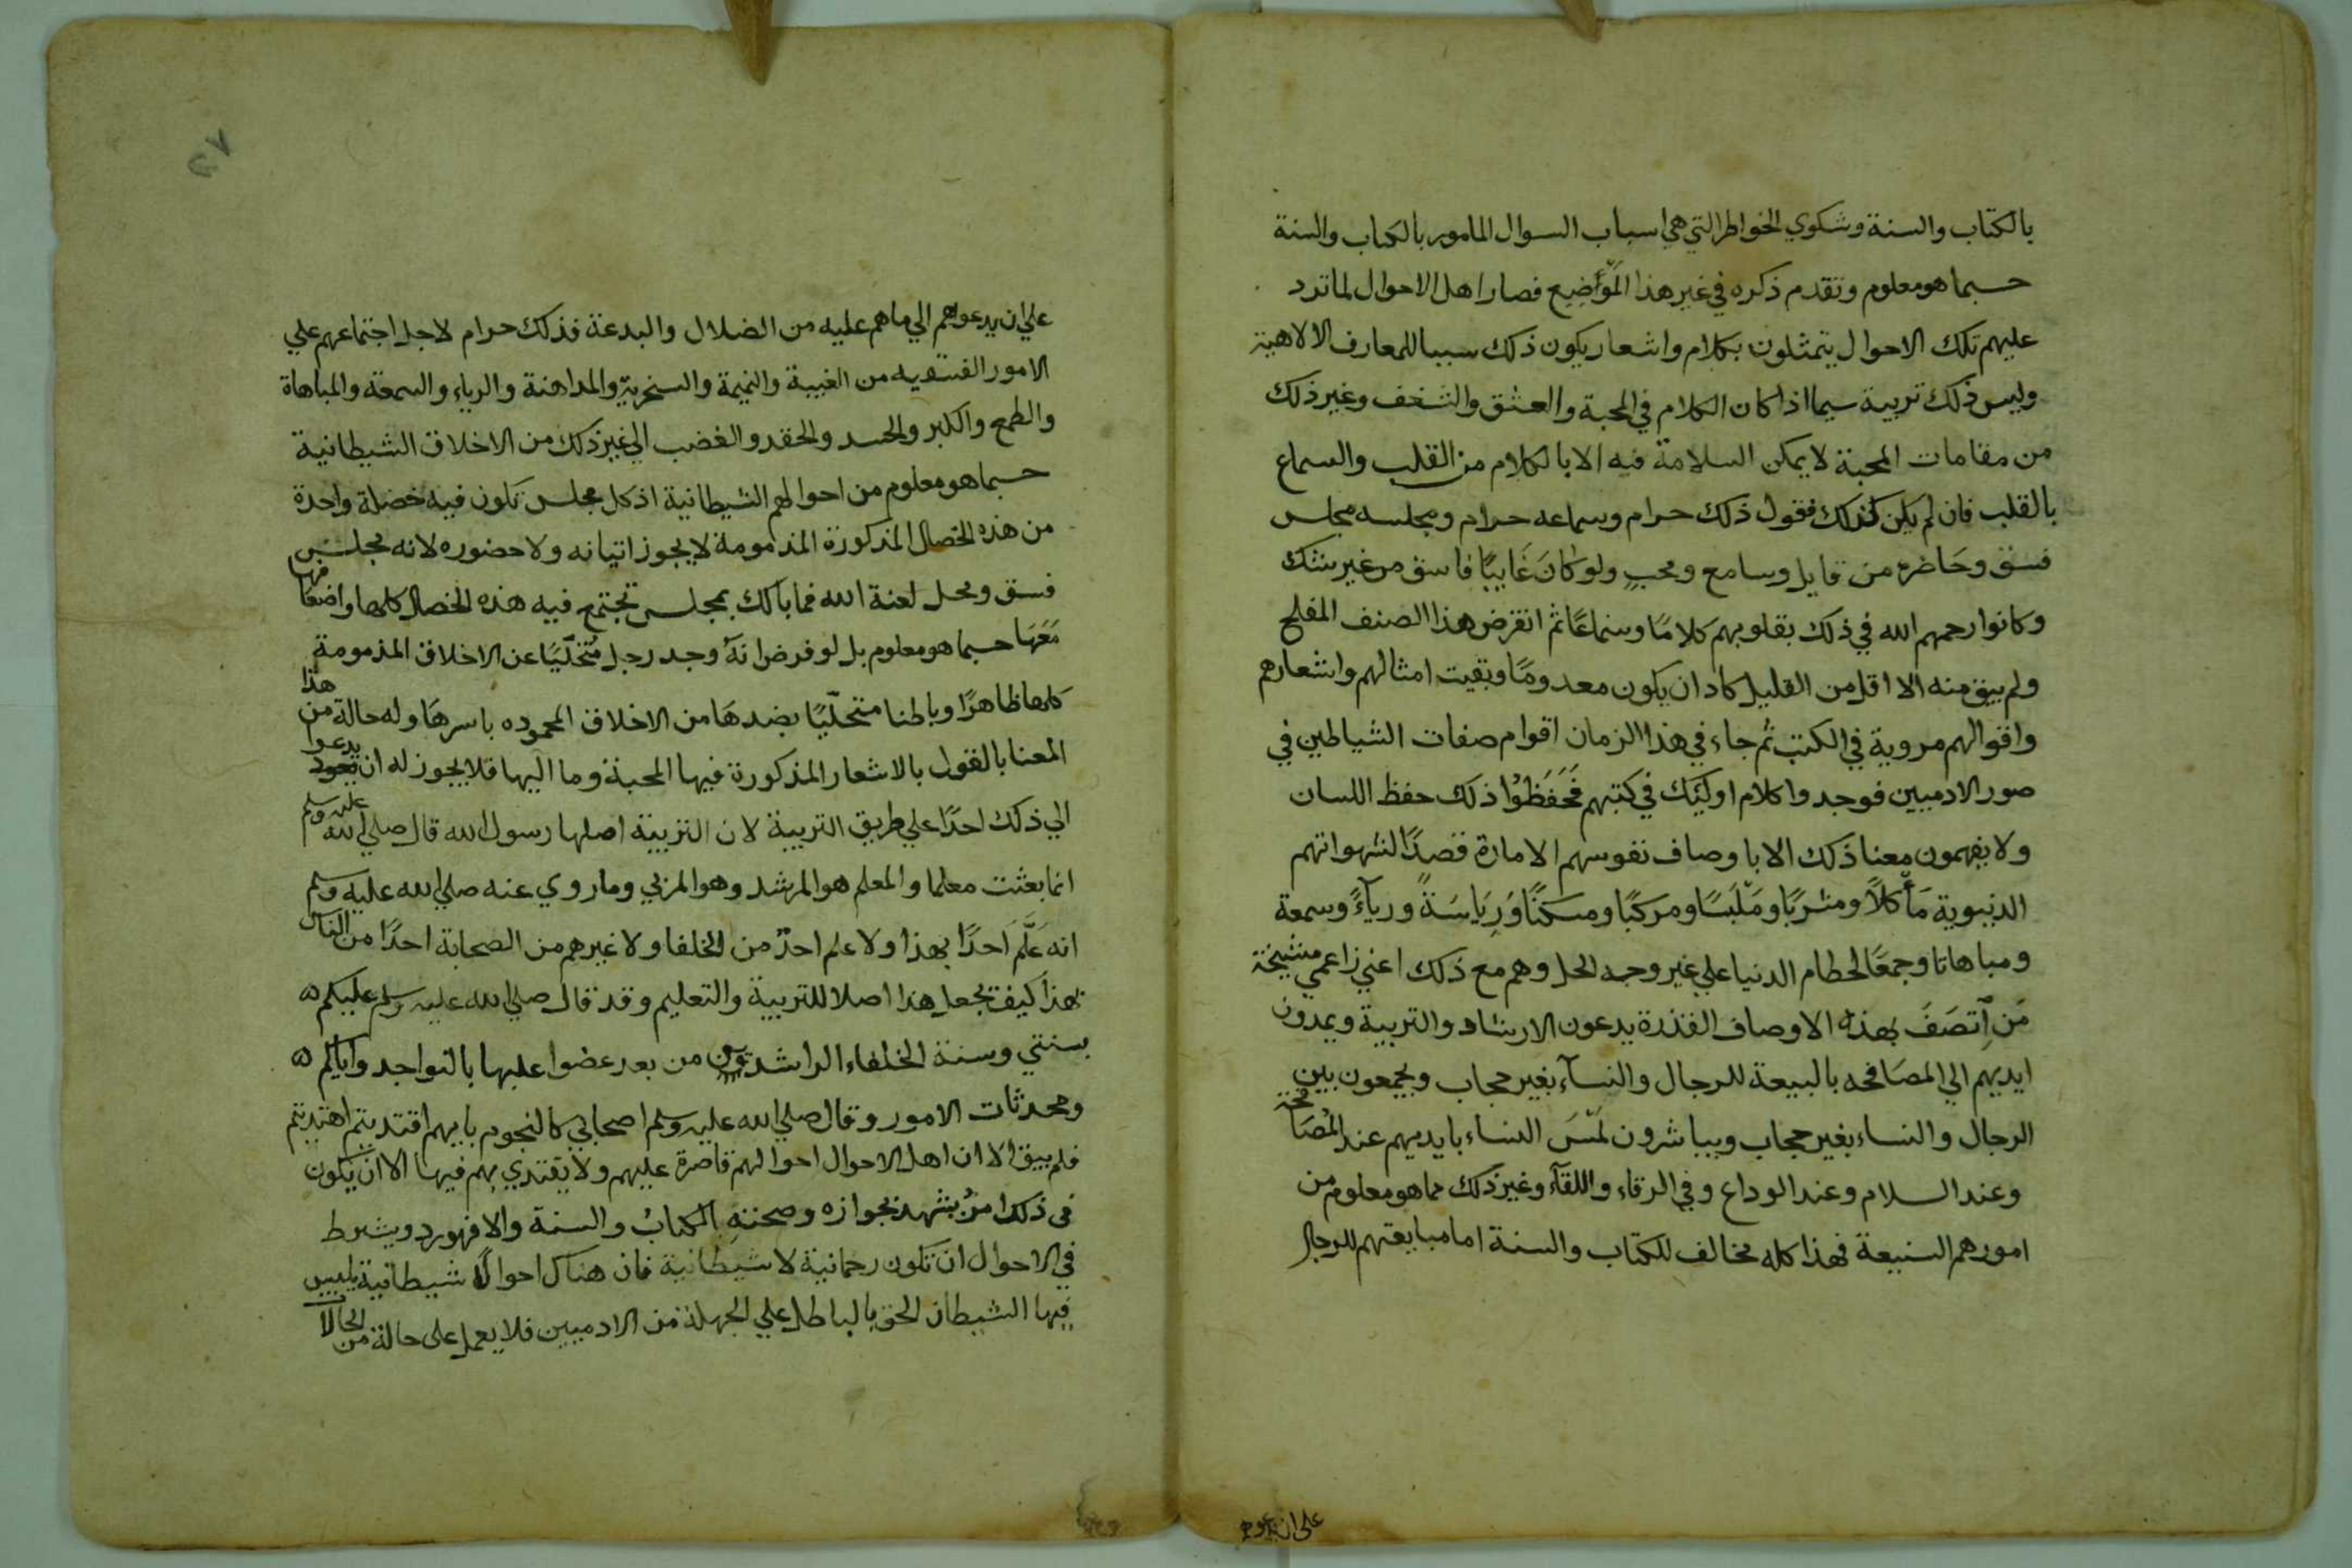 بالكتاب والسنة وشكوي الخواطر التي هي اسباب السوال المامور بالكتاب والسنة
حسبما هو معلوم وتقدم ذكره في غير هذا المواضيع فصار اهل الاحوال لما ترد
عليهم تلك الاحوال يتمثلون بكلام واشعار يكون ذلك سببا للمعارف الالاهية
وليس ذلك تربية سيما اذا كان الكلام في المحبة والعشق والشغف وغير ذلك
من مقامات المحبة لا يمكن السلامة فيه الا بالكلام من القلب والسماع
بالقلب فان لم يكن كذلك فقول ذلك حرام وسماعه حرام ومجلسه مجلس
فسق وحاضره من قايل وسامع ومحب ولو كان غايبًا فاسق من غير شك
وكانوا رحمهم الله في ذلك بقلوبهم كلامًا وسماعًا ثم انقرض هذا الصنف المفلح
ولم يبق منه الا اقل من القليل كاد ان يكون معدومًا وبقيت امثالهم واشعارهم
واقوالهم مروية في الكتب ثم جاء في هذا الزمان اقوام صفات الشياطين في
صور الادميين فوجدوا كلام اوليك في كتبهم فَحَفَظُوا ذلك حفظ اللسان
ولا يفهمون معنا ذلك الا باوصاف نفوسهم الامارة قصدًا لشهواتهم
الدنيوية مَأكلاً ومشربًا ومَلبَسًا ومركبًا ومسكنًا وَرِيَاسَةً ورياءً وسمعة
ومباهاتا وجمعًا لحطام الدنيا علي غير وجه الحل وهم مع ذلك اعني زاعمي مشيخة
مَن اِتصَفَ بهذه الاوصاف القذرة يدعون الارشاد والتربية ويمدون
ايديهم الي المصافحه بالبيعة للرجال والنسآء بغير حجاب ويجمعون بين
الرجال والنساء بغير حجاب ويباشرون لَمْسَ النساء بايديهم عند المُصَافحة
وعند السلام وعند الوداع وفي الرقاء واللقآء وغير ذلك مما هو معلوم من
امورهم الشنيعة فهذا كله مخالف للكتاب والسنة اما مبايعتهم للرجال
على ان يدعوهم
علي ان يدعواهم الي ما هم عليه من الضلال والبدعة فذلك حرام لاجل اجتماعهم علي
الامور الفسقيه من الغيبة والنميمة والسخرية والمداهنة والرياء والسمعة والمباهاة
والطمع والكبر والحسد والحقد والغضب الي غير ذلك من الاخلاق الشيطانية
حسبما هو معلوم من احوالهم الشيطانية اذ كل مجلس تكون فيه خصلة واحدة
من هذه الخصال المذكورة المذمومة لا يجوز اتيانه ولا حضوره لانه مجلس
فسق ومحل لعنة الله فما بالك بمجلس تجتمع فيه هذه الخصال كلها واضعافها
مَعَهَا حسبما هو معلوم بل لو فرض انهُ وجد رجل مُتخلّيًا عن الاخلاق المذمومة
كلها ظاهرًا وباطنا متحلّيًا بضدهَا من الاخلاق المحموده باسرهَا وله حالة من هذا
المعنا بالقول بالاشعار المذكورة فيها المحبة وما اليها فلا يجوز له ان يدعوا
الي ذلك احدًا علي طريق التربية لان التربية اصلها رسول الله قال صلي الله عليه وسلم
انما بعثت معلما والمعلم هو المرشد وهو المربي وما روي عنه صلي الله عليه وسلم
انه عَلَّمَ احدًا بهذا ولا علم احدٌ من الخلفا ولا غيرهم من الصحابة احدًا من الناس
بهذا كيف يجعل هذا اصلا للتربية والتعليم وقد قال صلي الله عليه وسلم عليكم
بسنتي وسنة الخلفاء الراشدين من بعد عضوا عليها بالنواجد واياكم
ومحدثات الامور وقال صلي الله عليه وسلم اصحابي كالنجوم بايهم اقتديتم اهتديتم
فلم يبق الا ان اهل الاحوال احوالهم قاصرة عليهم ولا يقتدي بهم فيها الا ان يكون
في ذلك امرٌ يشهد بجوازه وصحته الكتابُ والسنة والا فهو رد ويشرط
في الاحوال ان تكون رحمانية لا شيطانية فان هناك احوالاً شيطانية يلبس
فيها الشيطان الحق بالباطل علي الجهلة من الادميين فلا يعمل على حالة من الحالا